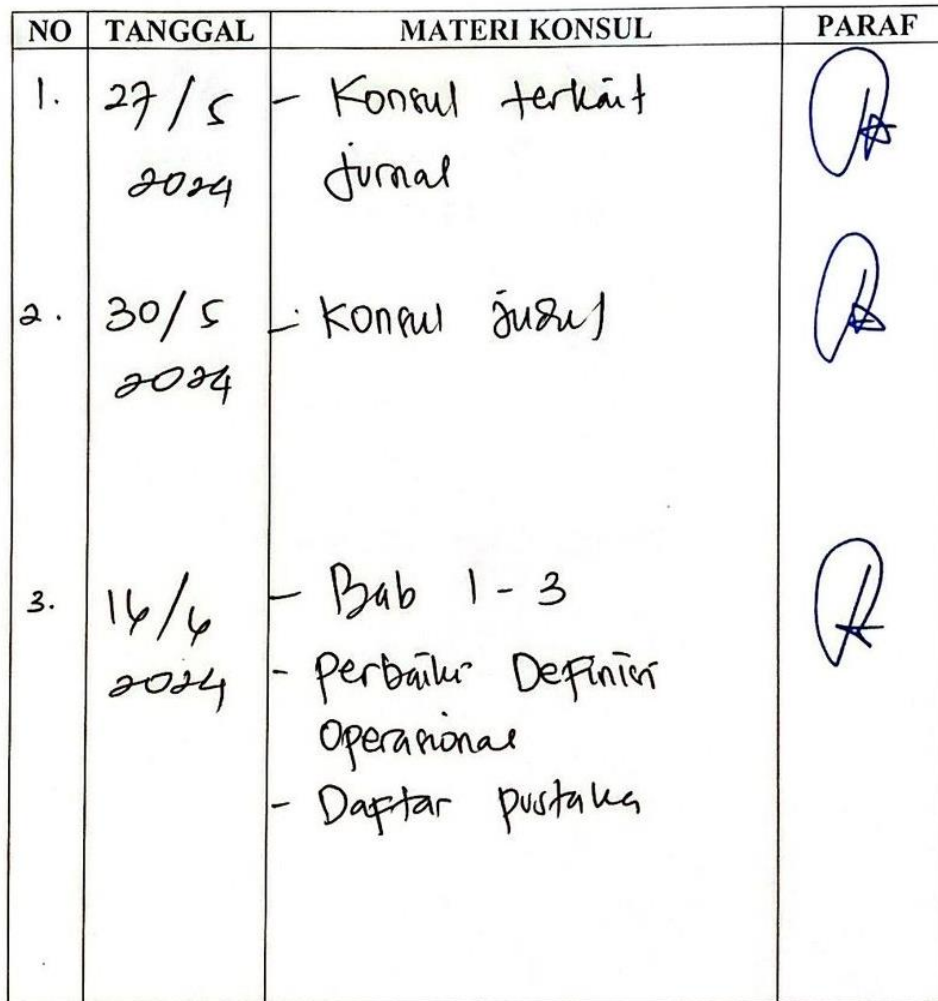 NO TANGGAL MATERI KONSUL PARAF
1. 27/5 - Konsul terkait
2024 jurnal
2. 30/5 - Konsul judul
2024
3. 16/6 - Bab 1 - 3
2024 - Perbaiki Definisi
Operasional
- Daftar pustaka